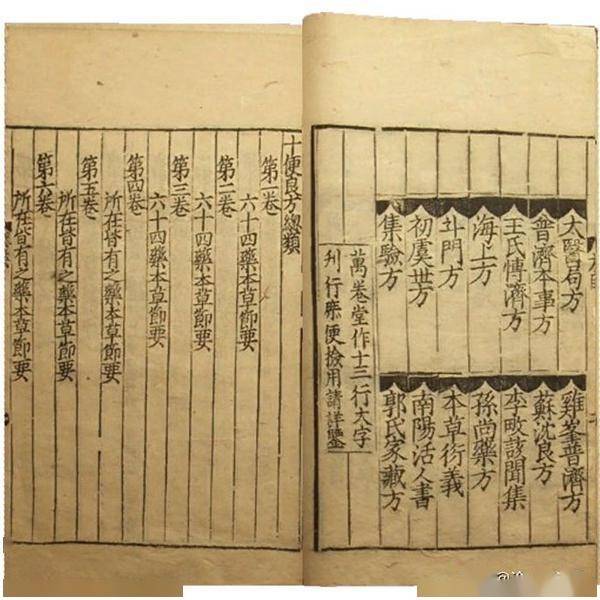 太醫局方
普濟本事方
王氏博濟方
海上方
斗門方
初虞世方
集驗方
雞峯普濟方
蘇沈良方
李畋該聞集
孫尚藥方
本草衍義
南陽活人書
郭氏家藏方
萬卷堂作十三行大字
刋行庶便檢用請詳鑒
十便良方總類
第一卷
六十四藥本草節要
第二卷
六十四藥本草節要
第三卷
六十四藥本草節要
第四卷
所在皆有之藥本草節要
第五卷
所在皆有之藥本草節要
第六卷
所在皆有之藥本草節要